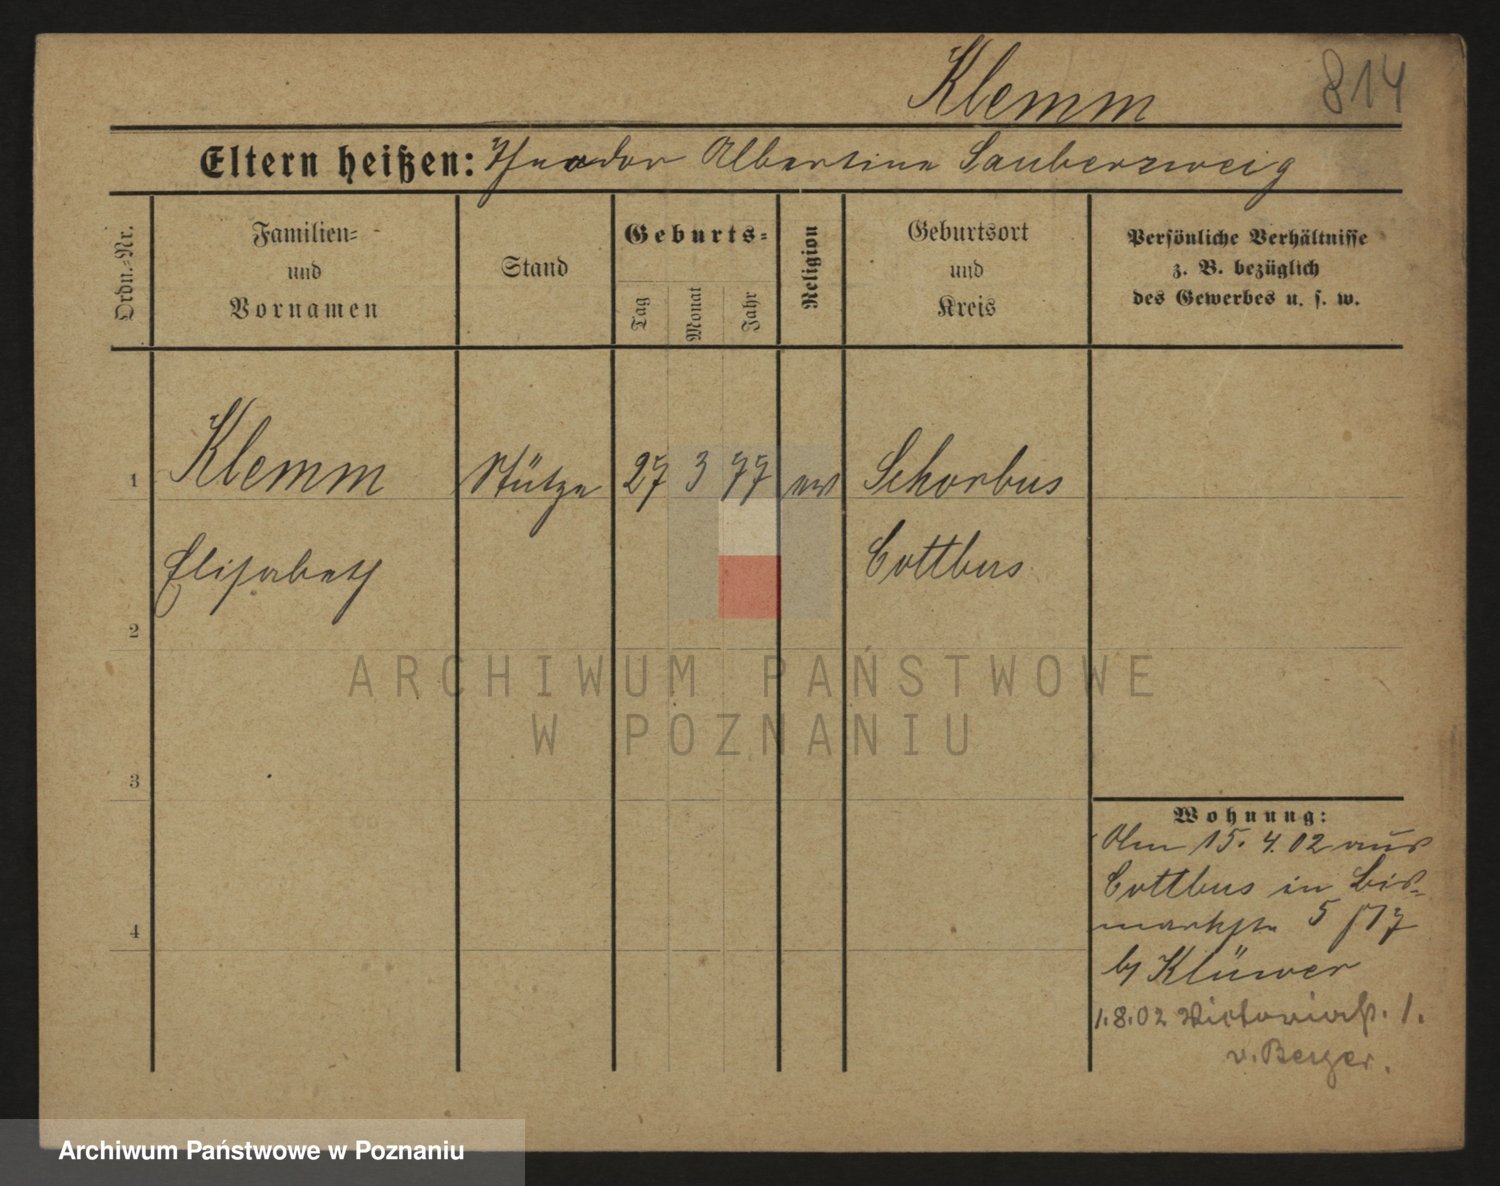 Klemm 814
Eltern heißen: Theodor Albertine Sauberzweig
Ordn.-Nr.
Familien-
und
Vornamen
Stand
Geburts-
Tag
Monat
Jahr
Religion
Geburtsort
und
Kreis
Persönliche Verhältnisse
z. B. bezüglich
des Gewerbes u. s. w.
1 Klemm Stütze 27 3 77 ev Schorbus
Elisabeth Cottbus
2
3
4
Wohnung:
Am 15. 4. 02 aus
Cottbus in Bis-
markstr 5
by Klüwer
1.8.02 Victoriastr. 1.
v. Berger.
ARCHIWUM PAŃSTWOWE
W POZNANIU
Archiwum Państwowe w Poznaniu